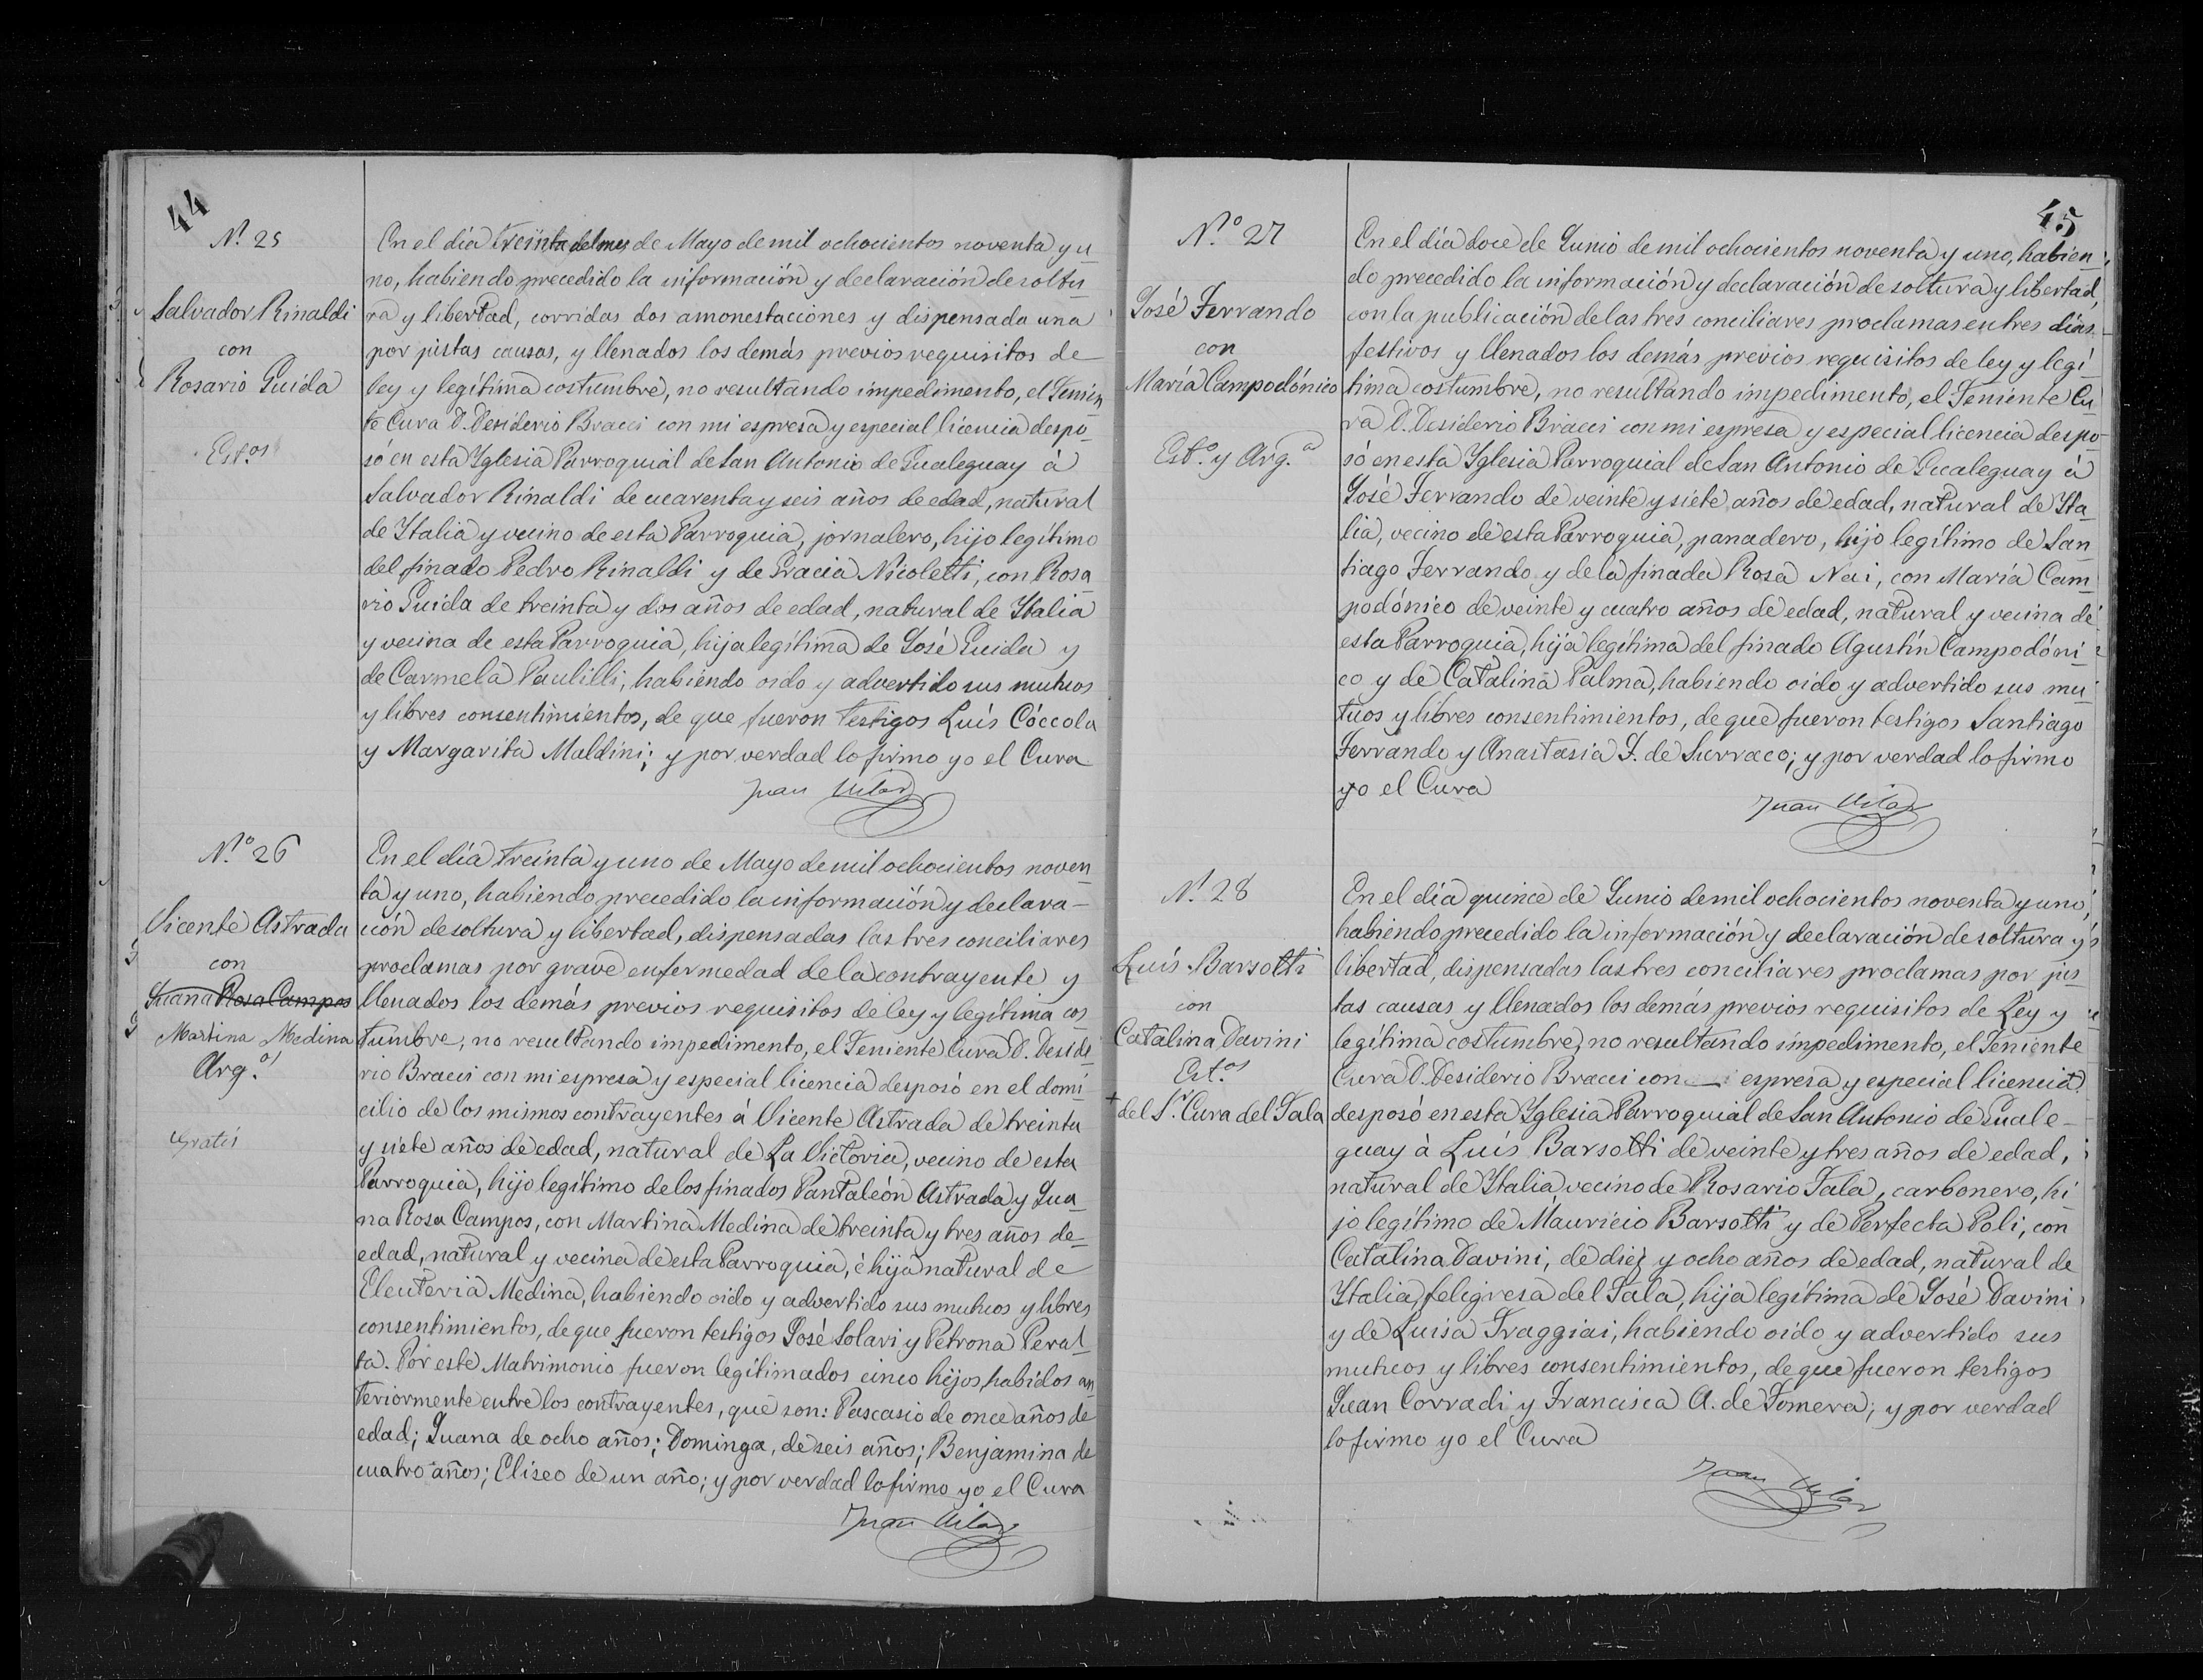 44
N.º 25
Salvador Rinaldi
con
Rosario Guida
Est.os
En el día treinta del mes de Mayo de mil ochocientos noventa y u
no, habiendo precedido la información y declaración de soltu-
ra y libertad, corridas dos amonestaciones y dispensada una
por justas causas, y llenados los demás previos requisitos de
ley y legítima costumbre, no resultando impedimento, el Tenien
te Cura D. Desiderio Bracci con mi espresa y especial licencia despo-
só en esta Yglesia Parroquial de San Antonio de Gualeguay á
Salvador Rinaldi de cuarenta y seis años de edad, natural
de Ytalia y vecino de esta Parroquia, jornalero, hijo legítimo
del finado Pedro Rinaldi y de Gracia Nicoletti, con Rosa
rio Guida de treinta y dos años de edad, natural de Ytalia
y vecina de esta Parroquia, hija legítima de José Guida y
de Carmela Paulilli, habiendo oido y advertido sus mutuos
y libres consentimientos, de que fueron testigos Luís Cóccola
y Margarita Maldini; y por verdad lo firmo yo el Cura
Juan Vilar
N.º 26
Vicente Astrada
con
Juana Rosa Campos
Martina Medina
Arg.os
Gratis
En el día treinta y uno de Mayo de mil ochocientos noven
ta y uno, habiendo precedido la información y declara-
ción de soltura y libertad, dispensadas las tres conciliares
proclamas por grave enfermedad de la contrayente y
llenados los demás previos requisitos de ley y legítima cos
tumbre, no resultando impedimento, el Teniente Cura D. Deside
rio Bracci con mi espresa y especial licencia desposó en el domi
cilio de los mismos contrayentes á Vicente Astrada de treinta
y siete años de edad, natural de La Victoria, vecino de esta
Parroquia, hijo legítimo de los finados Pantaleón Astrada y Jua
na Rosa Campos, con Martina Medina de treinta y tres años de
edad, natural y vecina de esta Parroquia, é hija natural de
Eleuteria Medina, habiendo oido y advertido sus mutuos y libres
consentimientos, de que fueron testigos José Solari y Petrona Peral
ta. Por este Matrimonio fueron legítimados cinco hijos, habidos an
teriormente entre los contrayentes, que son: Pascasio de once años de
edad; Juana de ocho años; Dominga, de seis años; Benjamina de
cuatro años; Eliseo de un año; y por verdad lo firmo yo el Cura
Juan Vilar
45
N.º 27
José Ferrando
con
María Campodónico
Est.º y Arg.ª
En el día doce de Junio de mil ochocientos noventa y uno, habien
do precedido la información y declaración de soltura y libertad,
con la publicación de las tres conciliares proclamas en tres días
festivos y llenados los demás previos requisitos de ley y legí
tima costumbre, no resultando impedimento, el Teniente Cu
ra D. Desiderio Bracci con mi espresa y especial licencia despo-
só en esta Yglesia Parroquial de San Antonio de Gualeguay á
José Ferrando de veinte y siete años de edad, natural de Yta
lia, vecino de esta Parroquia, panadero, hijo legítimo de San
tiago Ferrando y de la finada Rosa Nai, con María Cam
podónico de veinte y cuatro años de edad, natural y vecina de
esta Parroquia, hija legítima del finado Agustín Campodóni
co y de Catalina Palma, habiendo oido y advertido sus mu
tuos y libres consentimientos, de que fueron testigos Santiago
Ferrando y Anastasia F. de Surraco; y por verdad lo firmo
yo el Cura
Juan Vilar
N.º 28
Luís Barsotti
con
Catalina Davini
Est.os
+ del Sr. Cura del Tala
En el día quince de Junio de mil ochocientos noventa y uno,
habiendo precedido la información y declaración de soltura y
libertad, dispensadas las tres conciliares proclamas por jus
tas causas y llenados los demás previos requisitos de Ley y
legítima costumbre, no resultando impedimento, el Teniente
Cura D. Desiderio Bracci con espresa y especial licencia
desposó en esta Yglesia Parroquial de San Antonio de Guale-
guay á Luís Barsotti de veinte y tres años de edad,
natural de Ytalia, vecino de Rosario Tala, carbonero, hi
jo legítimo de Mauricio Barsotti y de Perfecta Poli, con
Catalina Davini, de diez y ocho años de edad, natural de
Ytalia, feligresa del Tala, hija legítima de José Davini
y de Luisa Fraggiai, habiendo oido y advertido sus
mutuos y libres consentimientos, de que fueron testigos
Juan Corradi y Francisca A. de Fomera; y por verdad
lo firmo yo el Cura
Juan Vilar